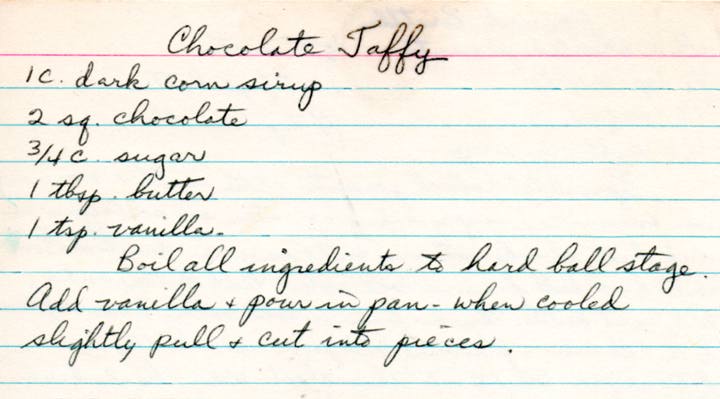 Chocolate Taffy
1 c. dark corn sirup
2 sq. chocolate
3/4 c. sugar
1 tbsp. butter
1 tsp. vanilla.
Boil all ingredients to hard ball stage.
Add vanilla + pour in pan - when cooled
slightly pull + cut into pieces.